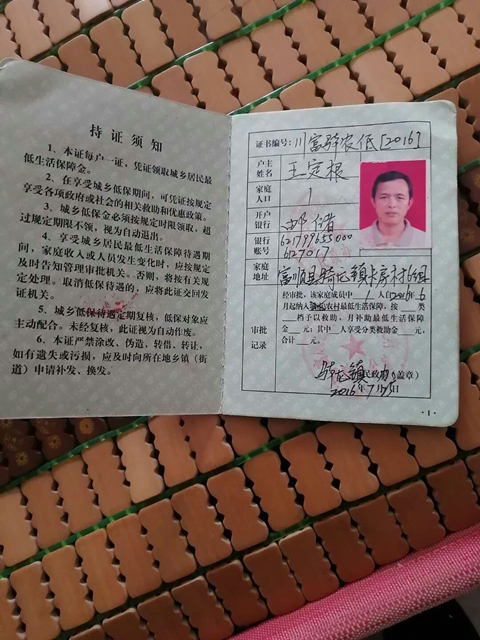 持证须知
1、本证每户一证，凭证领取城乡居民最
低生活保障金。
2、在享受城乡低保期间，可凭证按规定
享受各项政府或社会的相关救助和优惠政策。
3、城乡低保金必须按规定时限领取，超
过规定期限不领，视为自动退出。
4、享受城乡居民最低生活保障待遇期
间，家庭收入或人员发生变化时，应按规定
及时告知管理审批机关。否则，将按有关规
定处理。取消低保待遇的，应将此证交回发
证机关。
5、城乡低保待遇定期复核，低保对象应
主动配合。未经复核，此证视为自动作废。
6、本证严禁涂改、伪造、转借、转让，
如有遗失或污损，应及时向所在地乡镇（街
道）申请补发、换发。
证书编号：川富 农低[2016]
户主
姓名
王定根
家庭
人口
1
开户
银行
邮储
银行
账号
621799655000
627017
家庭
地址
富顺县骑龙镇 房村6组
审批
记录
经审批，该家庭成员中 1 人自2016年6
月起纳入 农村最低生活保障，按 类
档予以救助，月补助最低生活保障
金 元；其中 人享受分类救助金 元，
合计 元。
骑龙镇 民政办（盖章）
2016年7月5日
·1·